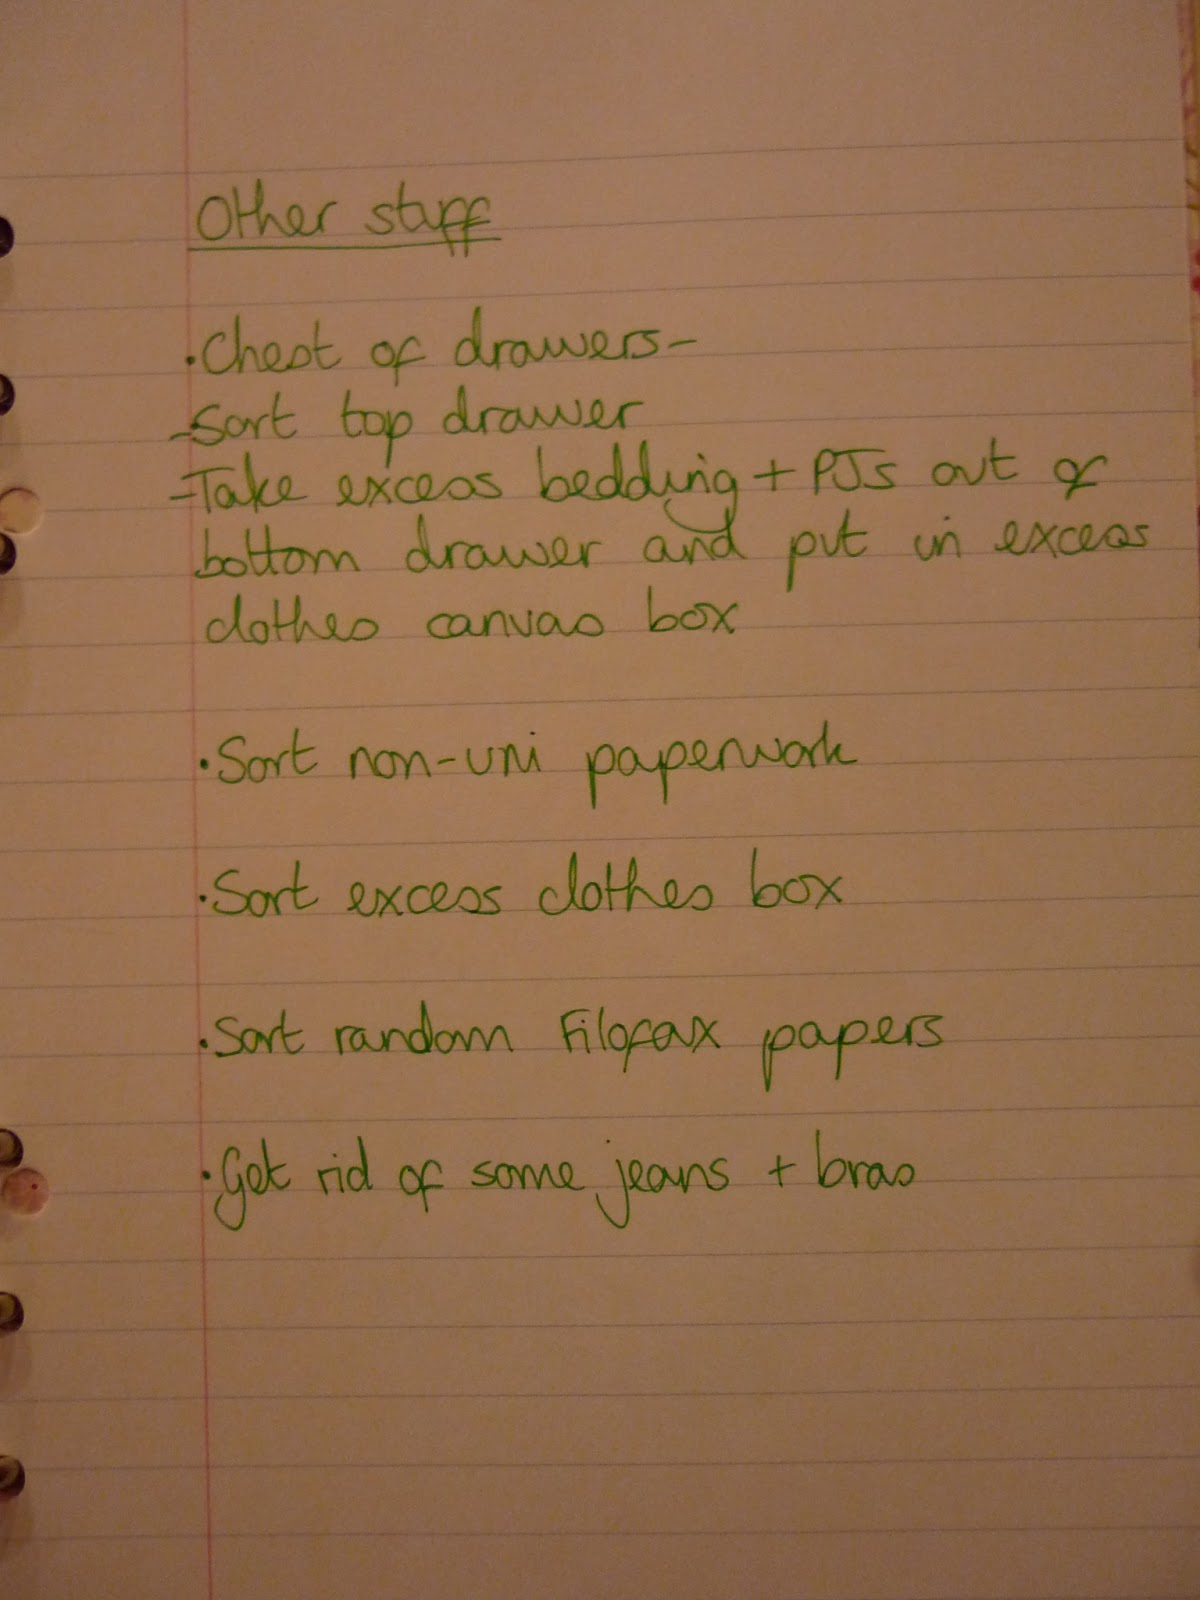 Other stuff
•Chest of drawers-
-Sort top drawer
-Take excess bedding + PJs out of
bottom drawer and put in excess
clothes canvas box
•Sort non-uni paperwork
•Sort excess clothes box
•Sort random Filofax papers
•Get rid of some jeans + bras